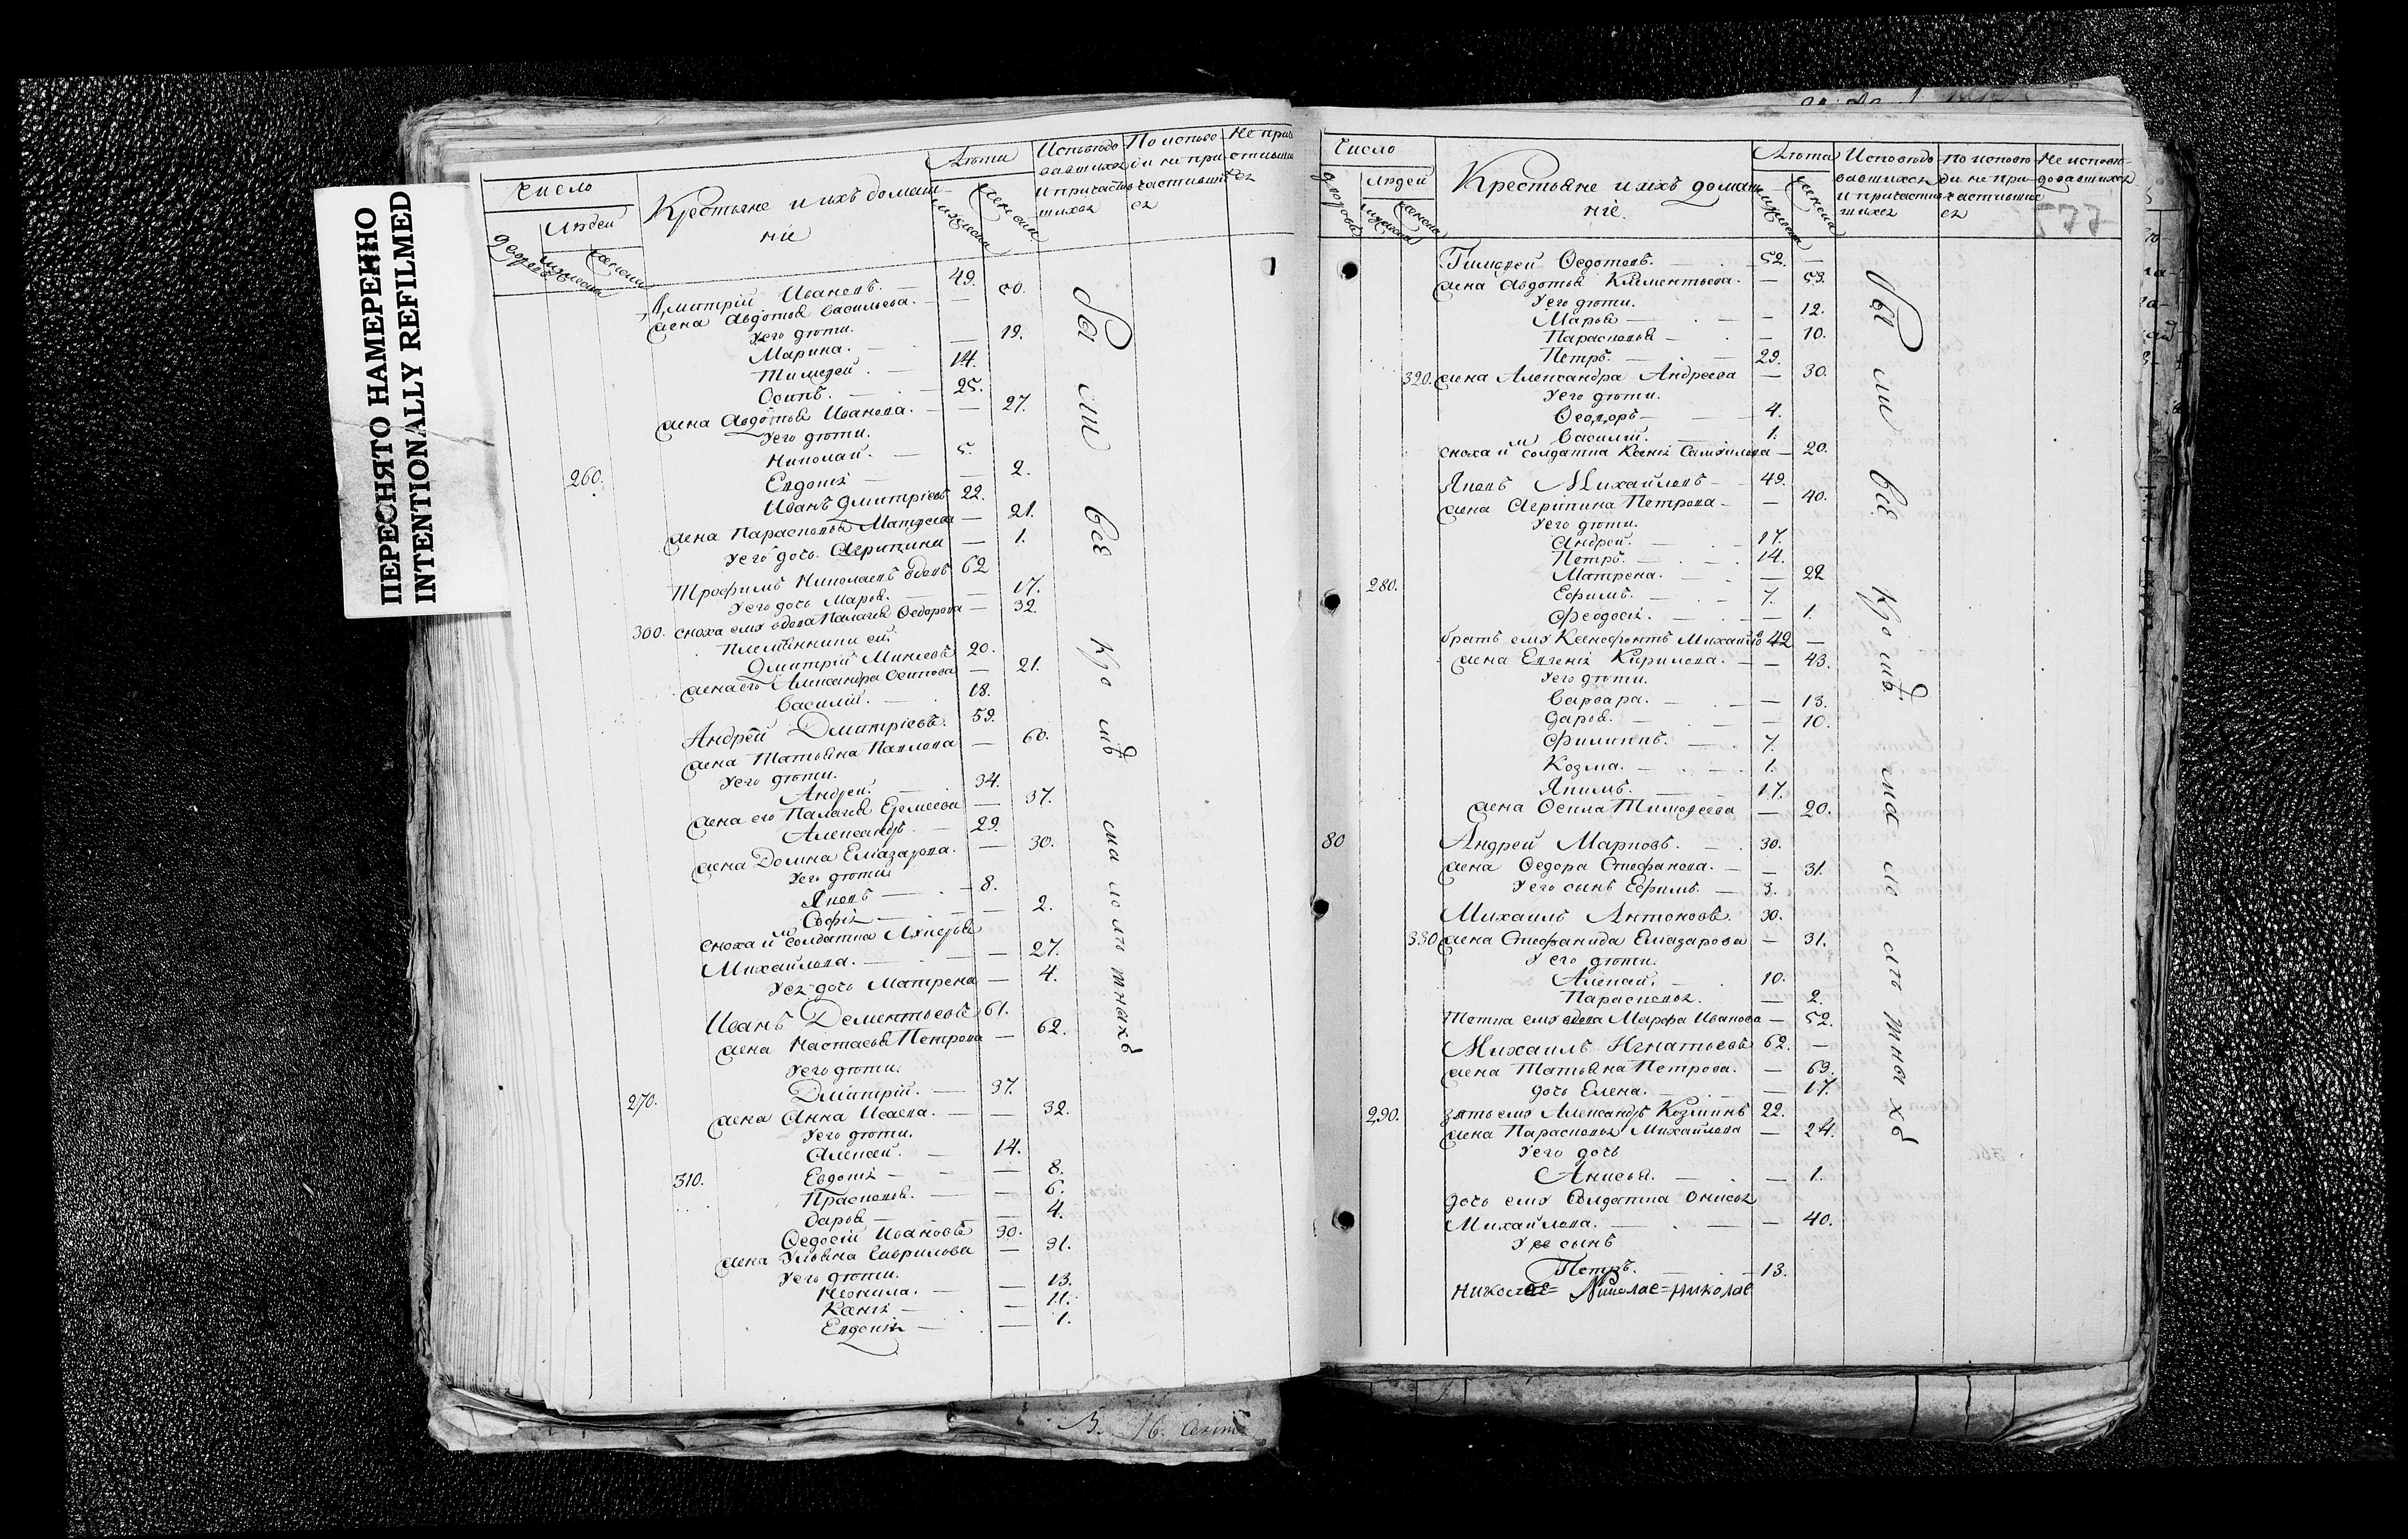 ПЕРЕСНЯТО НАМЕРЕННО
INTENTIONALLY REFILMED
Число
Людей
дворовъ
мужеска
женска
Крестьяне и ихъ домаш-
нiе
Лѣта
мужеска
женска
Исповѣдо
вавшихся
и причастив
шихся
По исповѣ
ди не при-
частивших
ся
Не прича
стивших
ся
Дмитрiй Ивановъ. — 49.
жена Авдотья Васильева. — 50.
У него дѣти.
Марина. — 19.
Тимоѳей. — 14.
Осипъ. — 25.
жена Авдотья Иванова. — 27.
У него дѣти.
Николай. — 5.
260. Евдокiя — 2.
Иванъ Дмитрiевъ 22.
жена Парасковья Матѳеева — 21.
У него дочь Агрипина — 1.
Трофимъ Николаевъ вдовъ 62
У него дочь Марья. — 17.
300. сноха ему вдова Палагея Ѳедорова — 32.
племянники ей.
Дмитрiй Михеевъ 20.
жена его Александра Осипова — 21.
Василiй. — 18.
Андрей Дмитрiевъ. 59.
жена Татьяна Павлова — 60.
У него дѣти.
Андрей. — 34.
жена его Палагея Еремеева — 37.
Александръ. — 29.
жена Домна Елiазарова. — 30.
У него дѣти
Яковъ — 8.
Софiя — 2.
сноха и солдатка Лукерья
Михайлова. — 27.
У ея дочь Матрена — 4.
Иванъ Дементьевъ 61.
жена Настасья Петрова — 62.
У него дѣти.
270. Дмитрiй. — 37.
жена Анна Исаева. — 32.
У него дѣти.
Алексей. — 14.
310. Евдокiя — 8.
Прасковья. — 6.
Дарья — 4.
Ѳедосiй Ивановъ 30.
жена Ульяна Гаврилова — 31.
У него дѣти.
Неонила. — 13.
Ксенiя — 11.
Евдокiя — 1.
бы ли всѣ кро мѣ ма ло лѣ тныхъ
Число
Людей
дворовъ
мужеска
женска
Крестьяне и ихъ домаш-
нiе.
Лѣта
мужеска
женска
Исповѣдо
вавшихся
и причастив
шихся
по исповѣ
ди не при-
частивших
ся
Не исповѣ-
довавшихся
577
Тимоѳей Ѳедотовъ. — 52. —
жена Авдотья Климентьева. — 53.
У него дѣти.
Марья — 12.
Парасковья — 10.
Петръ. — 29.
320. жена Александра Андреева — 30.
У него дѣти.
Ѳеодоръ — 4.
Василiй. — 1.
сноха и солдатка Ксенiя Самойлова — 20.
Яковъ Михайловъ — 49.
жена Агрипина Петрова — 40.
У него дѣти.
Андрей. — 17.
Петръ. — 14.
Матрена. — 22
280. Ефимъ. — 7.
Феодосiя. — 1.
братъ ему Ксенофонтъ Михайло 42 —
жена Евгенiя Кирилова. — 43.
У него дѣти.
Варвара. — 13.
Дарья. — 10.
Филиппъ. — 7.
Козма. — 1.
Якимъ. — 17.
жена Ѳекла Тимоѳеева — 20.
80 Андрей Марковъ. — 30.
жена Ѳедора Стефанова. — 31.
У него сынъ Ефимъ. — 3.
Михаилъ Антоновъ. 30.
330 жена Стефанида Елiазарова — 31.
У него дѣти.
Алексей. — 10.
Парасковья. — 2.
Тетка ему вдова Марфа Иванова — 52.
Михаилъ Игнатьевъ 62. —
жена Татьяна Петрова. — 63.
дочь Елена. — 17.
290. зять ему Александръ Козминъ 22.
жена Парасковья Михайлова — 24.
У него дочь
Анисья. — 1.
дочь ему Солдатка Онисья
Михайлова. — 40.
У ее сынъ
Петръ. — 13.
Николае= Николае=николае
бы ли всѣ кро мѣ ма ло лѣ тны хъ